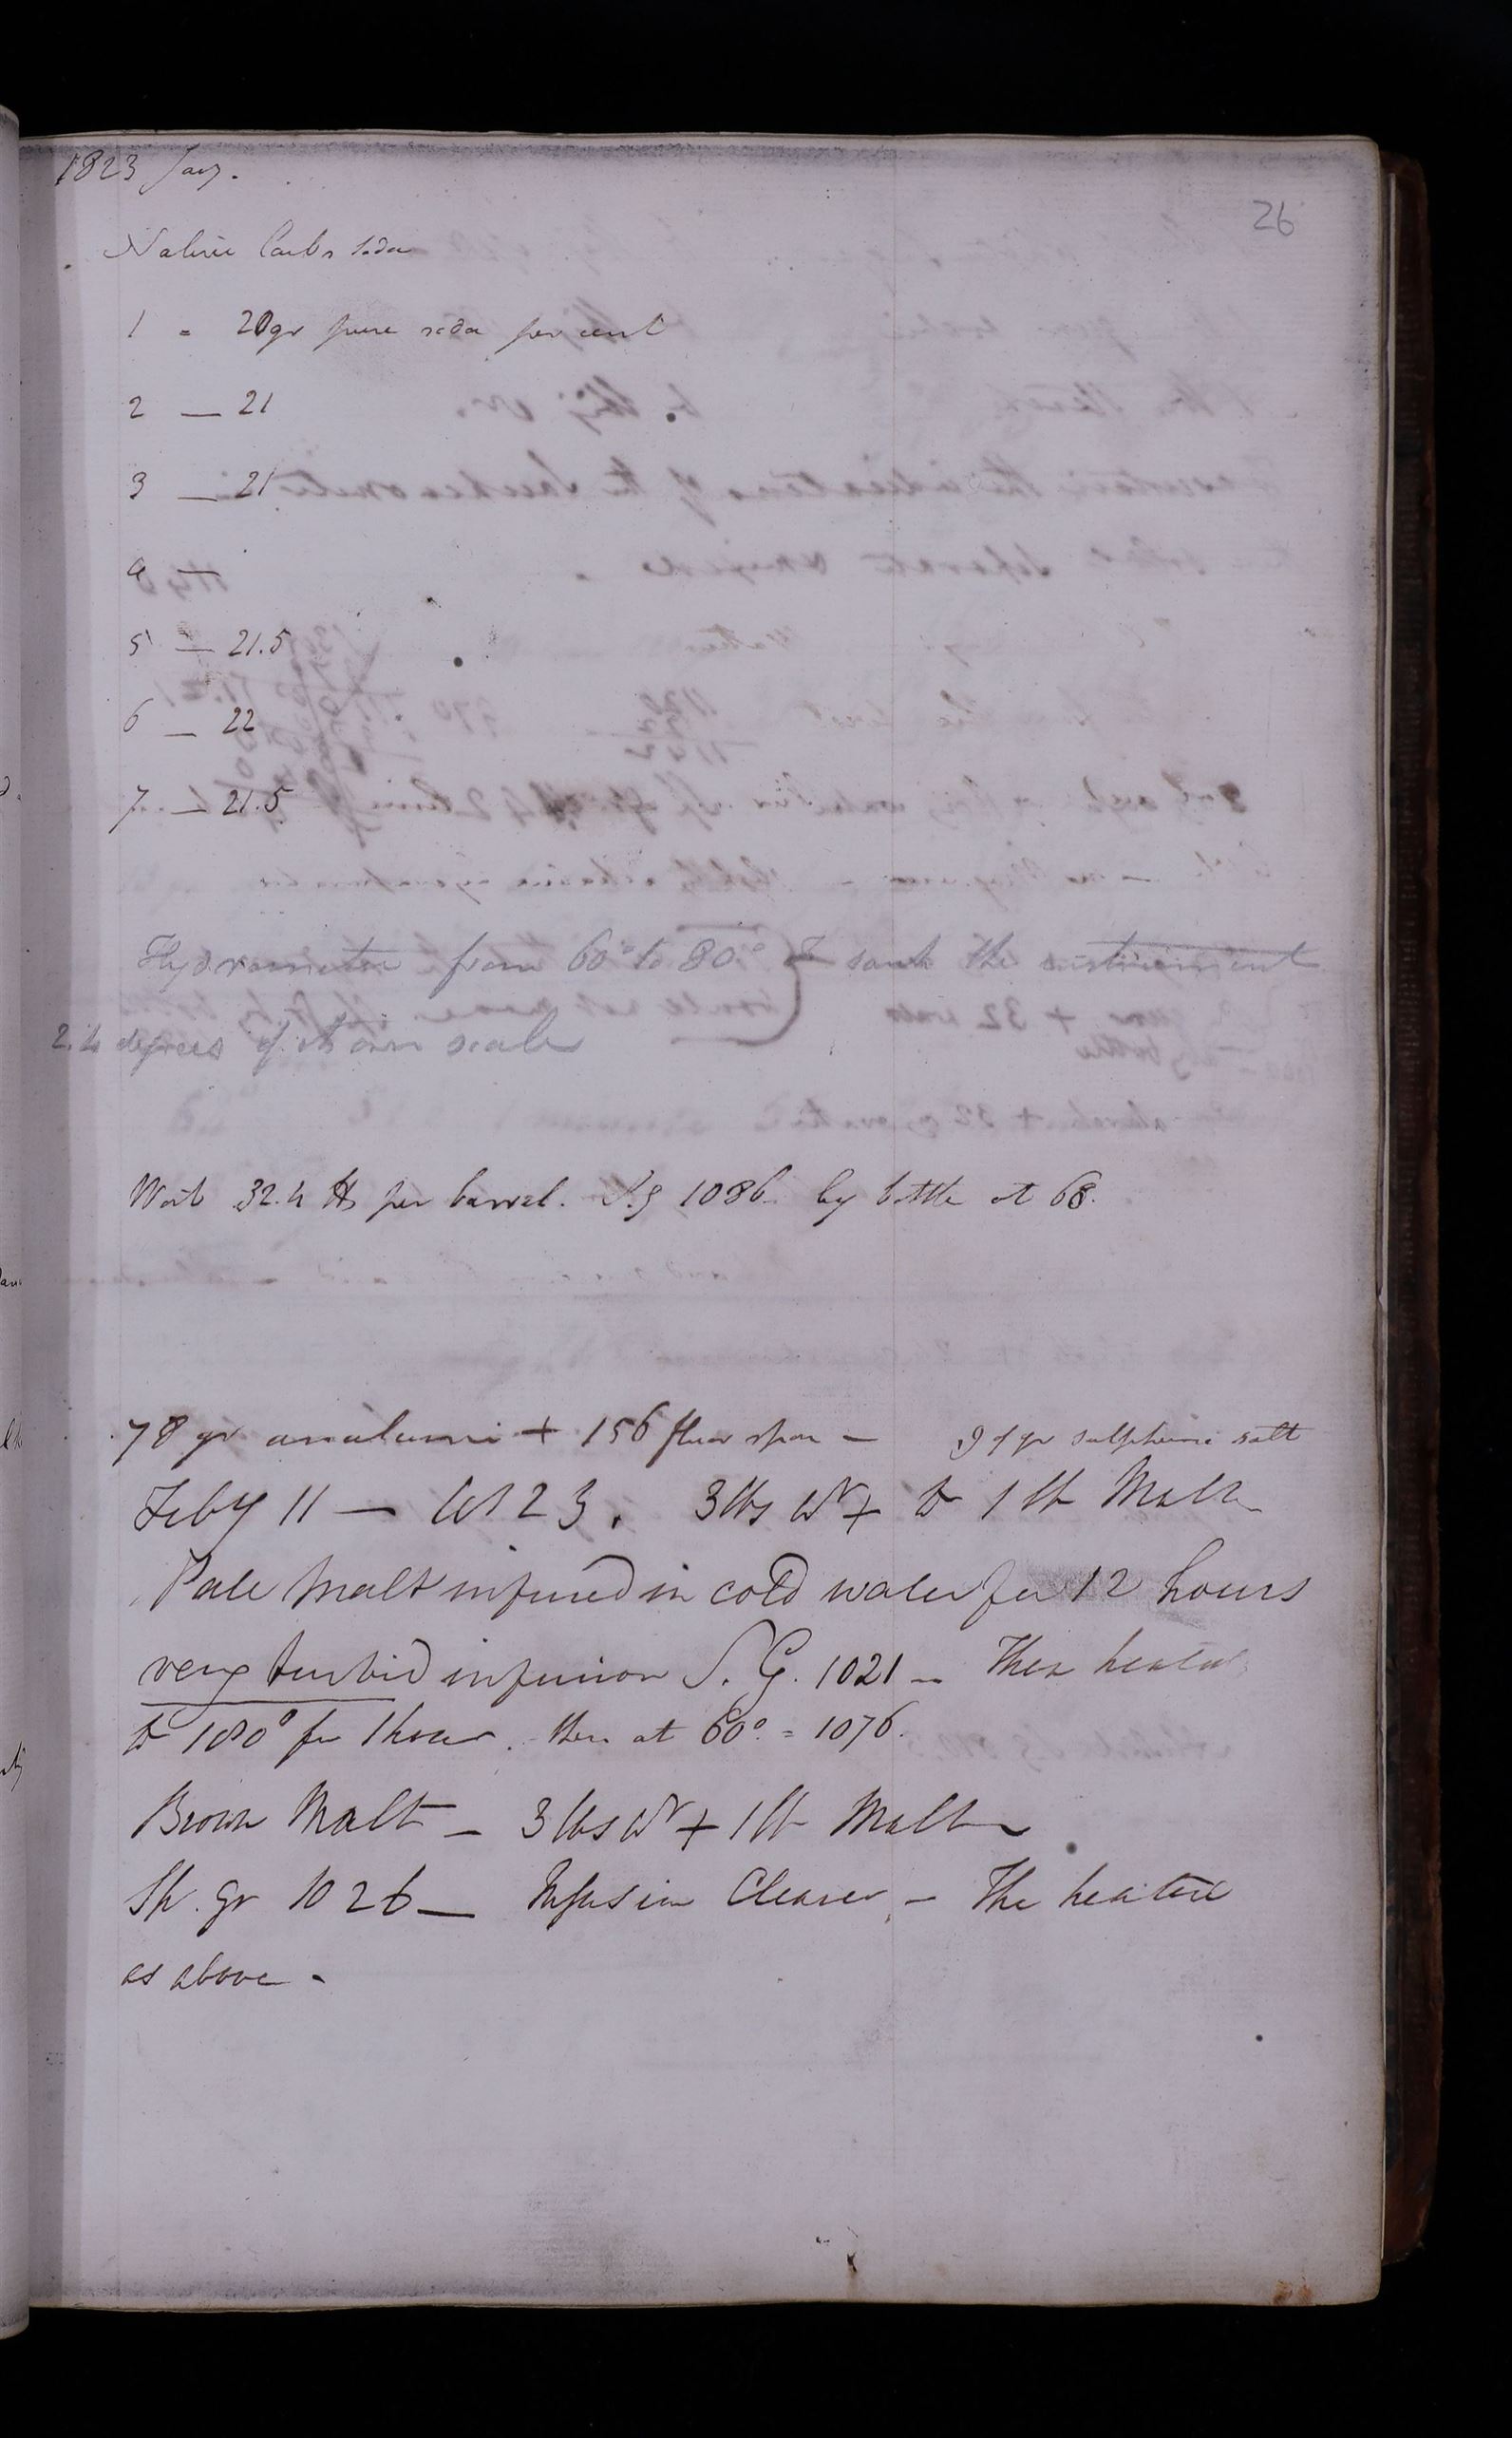 1823 Jany.
26
Native Carb. soda
1 = 20gr pure soda per cent
2 — 21
3 — 21
4
5 — 21.5
6 — 22
7 — 21.5
Hydrometer from 60° to 80° sank the instrument
2.4 degrees of its own scale
Wort 32.4 lbs per barrel. S.g 1086 by bottle at 68.
78 gr + 156 fluor spar — 91 gr salt
Feby 11 — 1823. 3 lbs Wr + to 1 lb Malt
Pale Malt infused in cold water for 12 hours
very turbid infusion S. G. 1021 — Then heated
to 180° for 1 hour. then at 60° = 1076.
Brown Malt — 3 lbs Wr + 1 lb Malt
Sp. gr 1026 — Infusion Clearer — The heated
as above —